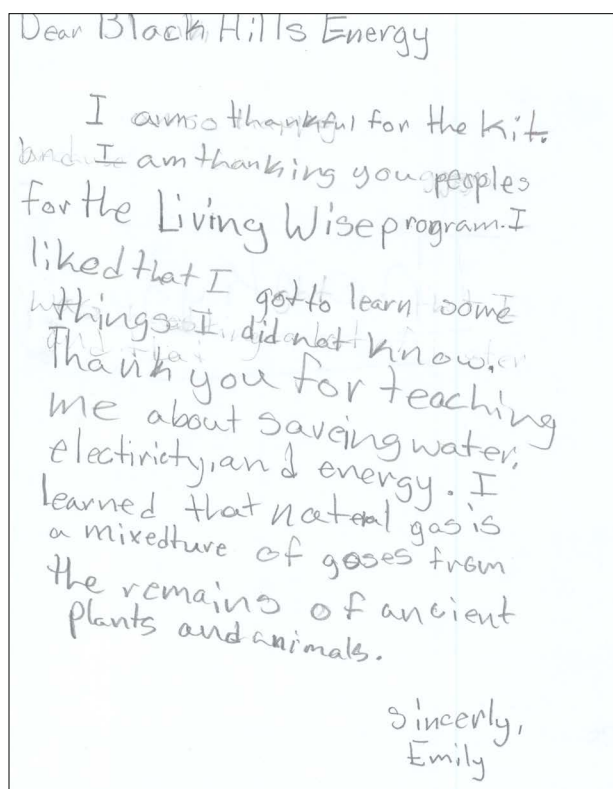 Dear Black Hills Energy
I am so thankful for the kit.
and I am thanking you peoples
for the Living Wise program. I
liked that I got to learn some
things I did not know.
Thank you for teaching
me about saveing water,
electiricty, and energy. I
learned that nateral gas is
a mixedture of gases from
the remains of ancient
plants and animals.
sincerly,
Emily